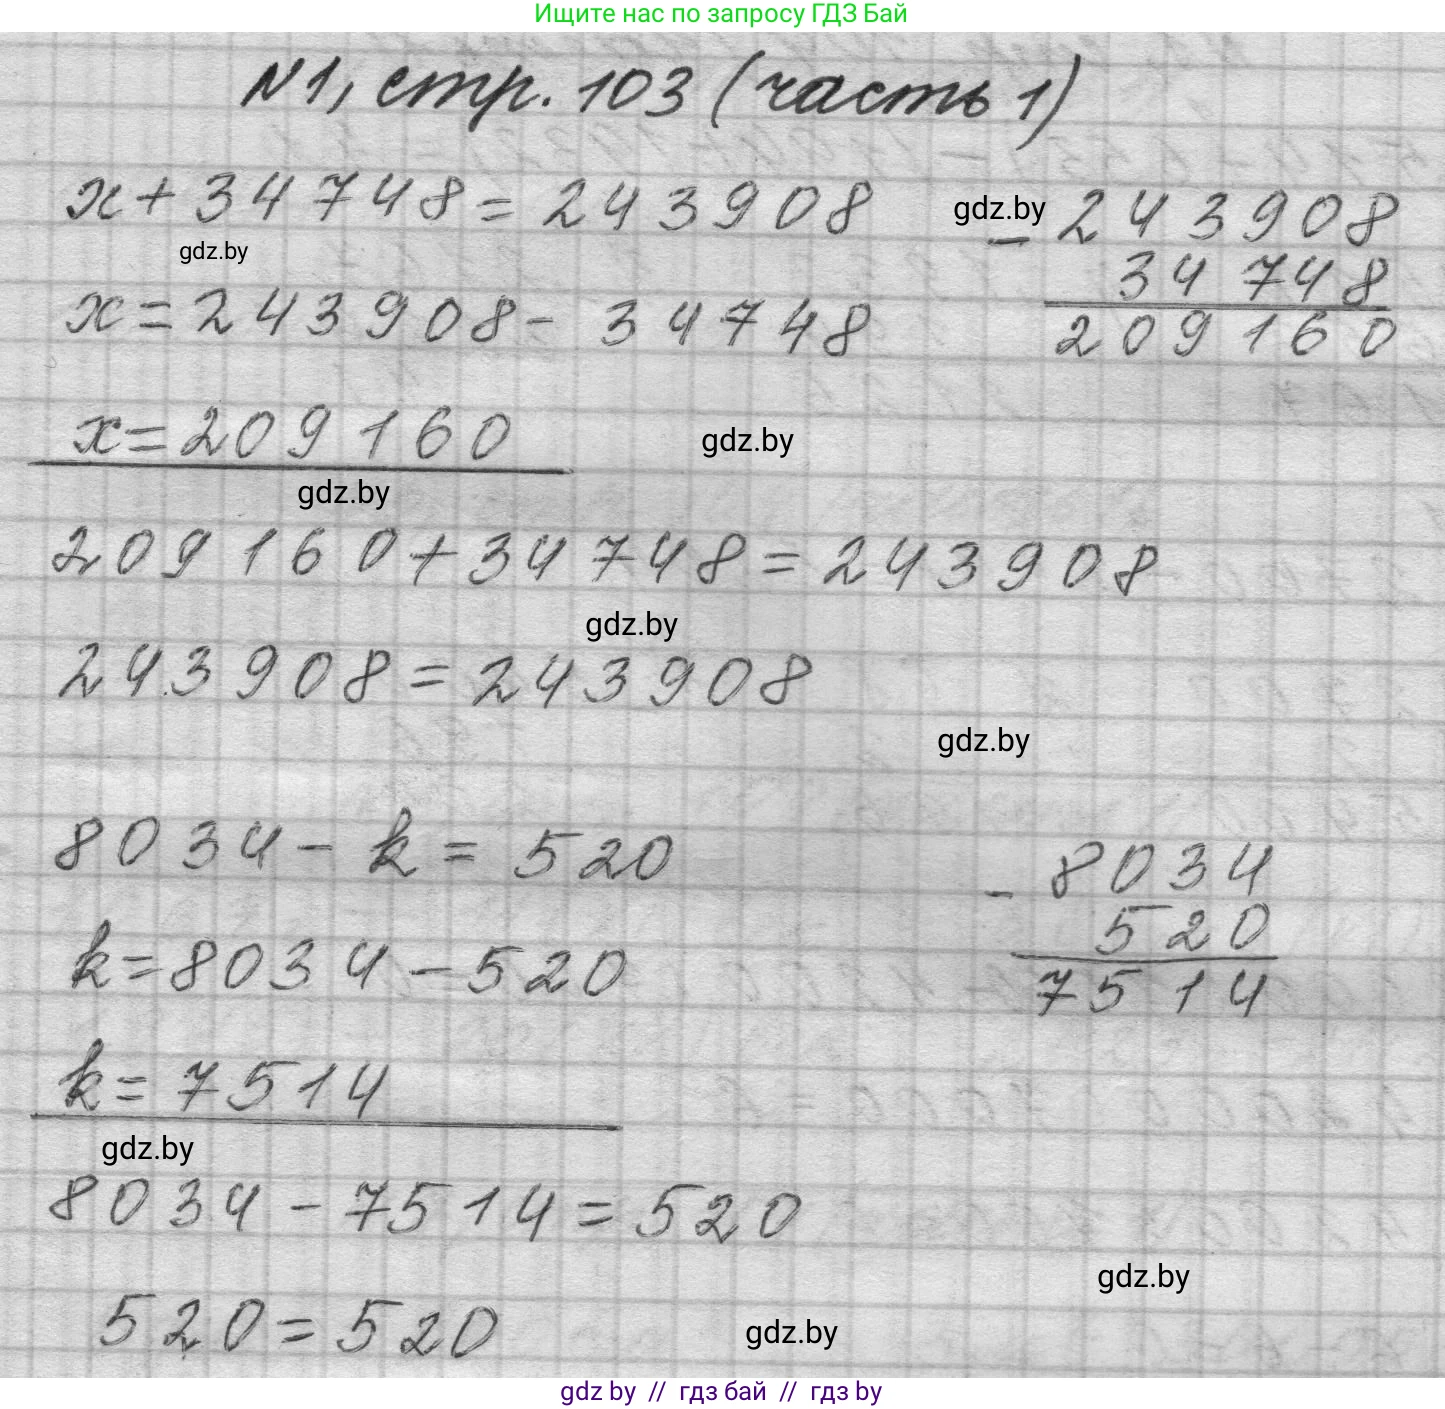 Ищите нас по запросу ГДЗ Бай
№1, стр. 103 (часть 1)
x + 34748 = 243908
gdz.by
x = 243908 - 34748
gdz.by
- 243908
34748
209160
x = 209160
gdz.by
gdz.by
209160 + 34748 = 243908
gdz.by
243908 = 243908
gdz.by
8034 - k = 520
k = 8034 - 520
- 8034
520
7514
k = 7514
gdz.by
8034 - 7514 = 520
gdz.by
520 = 520
gdz.by
gdz by // гдз бай // гдз by